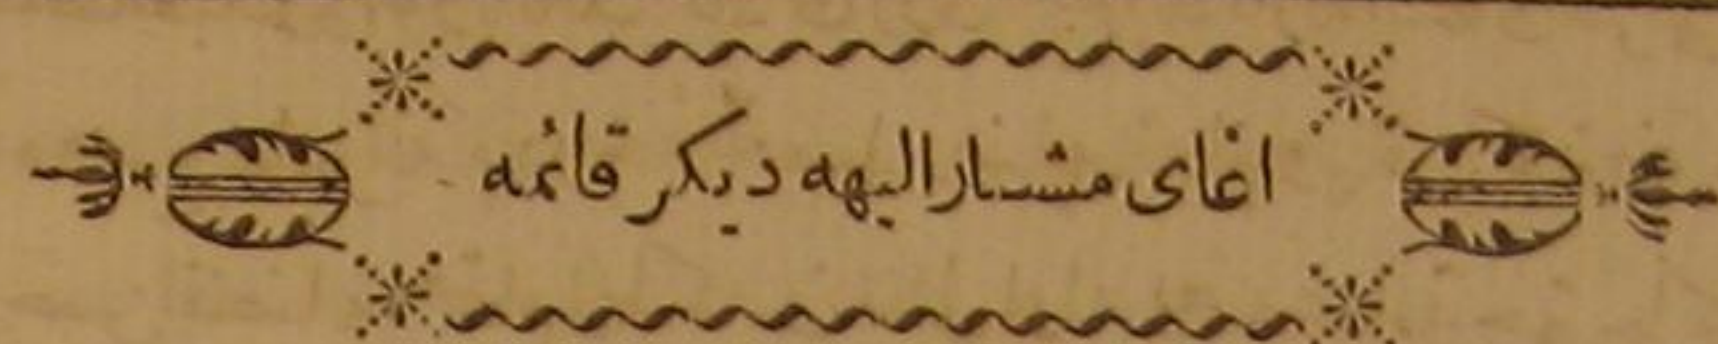 اغاى مشار اليهه ديكر قائمه